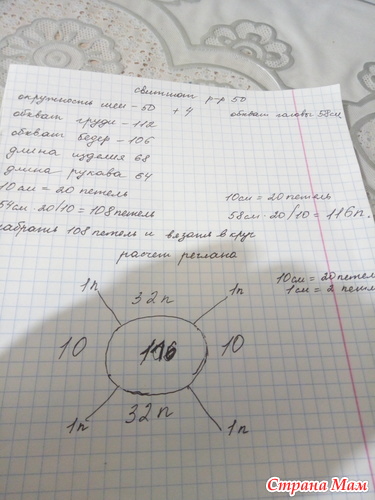 свитшот р-р 50
окружность шеи - 50 + 4 обхват головы 58см
обхват груди - 112
обхват бедер - 106
длина изделия 68
длина рукава 64
10см = 20 петель 10см = 20 петель
54см · 20/10 = 108 петель 58см · 20/10 = 116п.
набрать 108 петель и вязать в круг
расчет реглана
10см = 20 петел
1см = 2 петл
1п 32п 1п
10 116 10
1п 32п 1п
Страна Мам